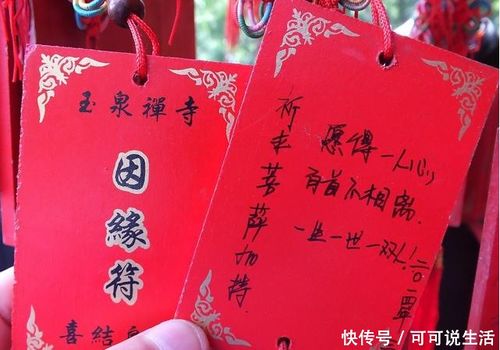 玉泉禪寺
因緣符
喜結
祈求菩薩加持
愿得一人心
百首不相离.
一生一世一双人!
二〇一四
快传号 / 可可说生活